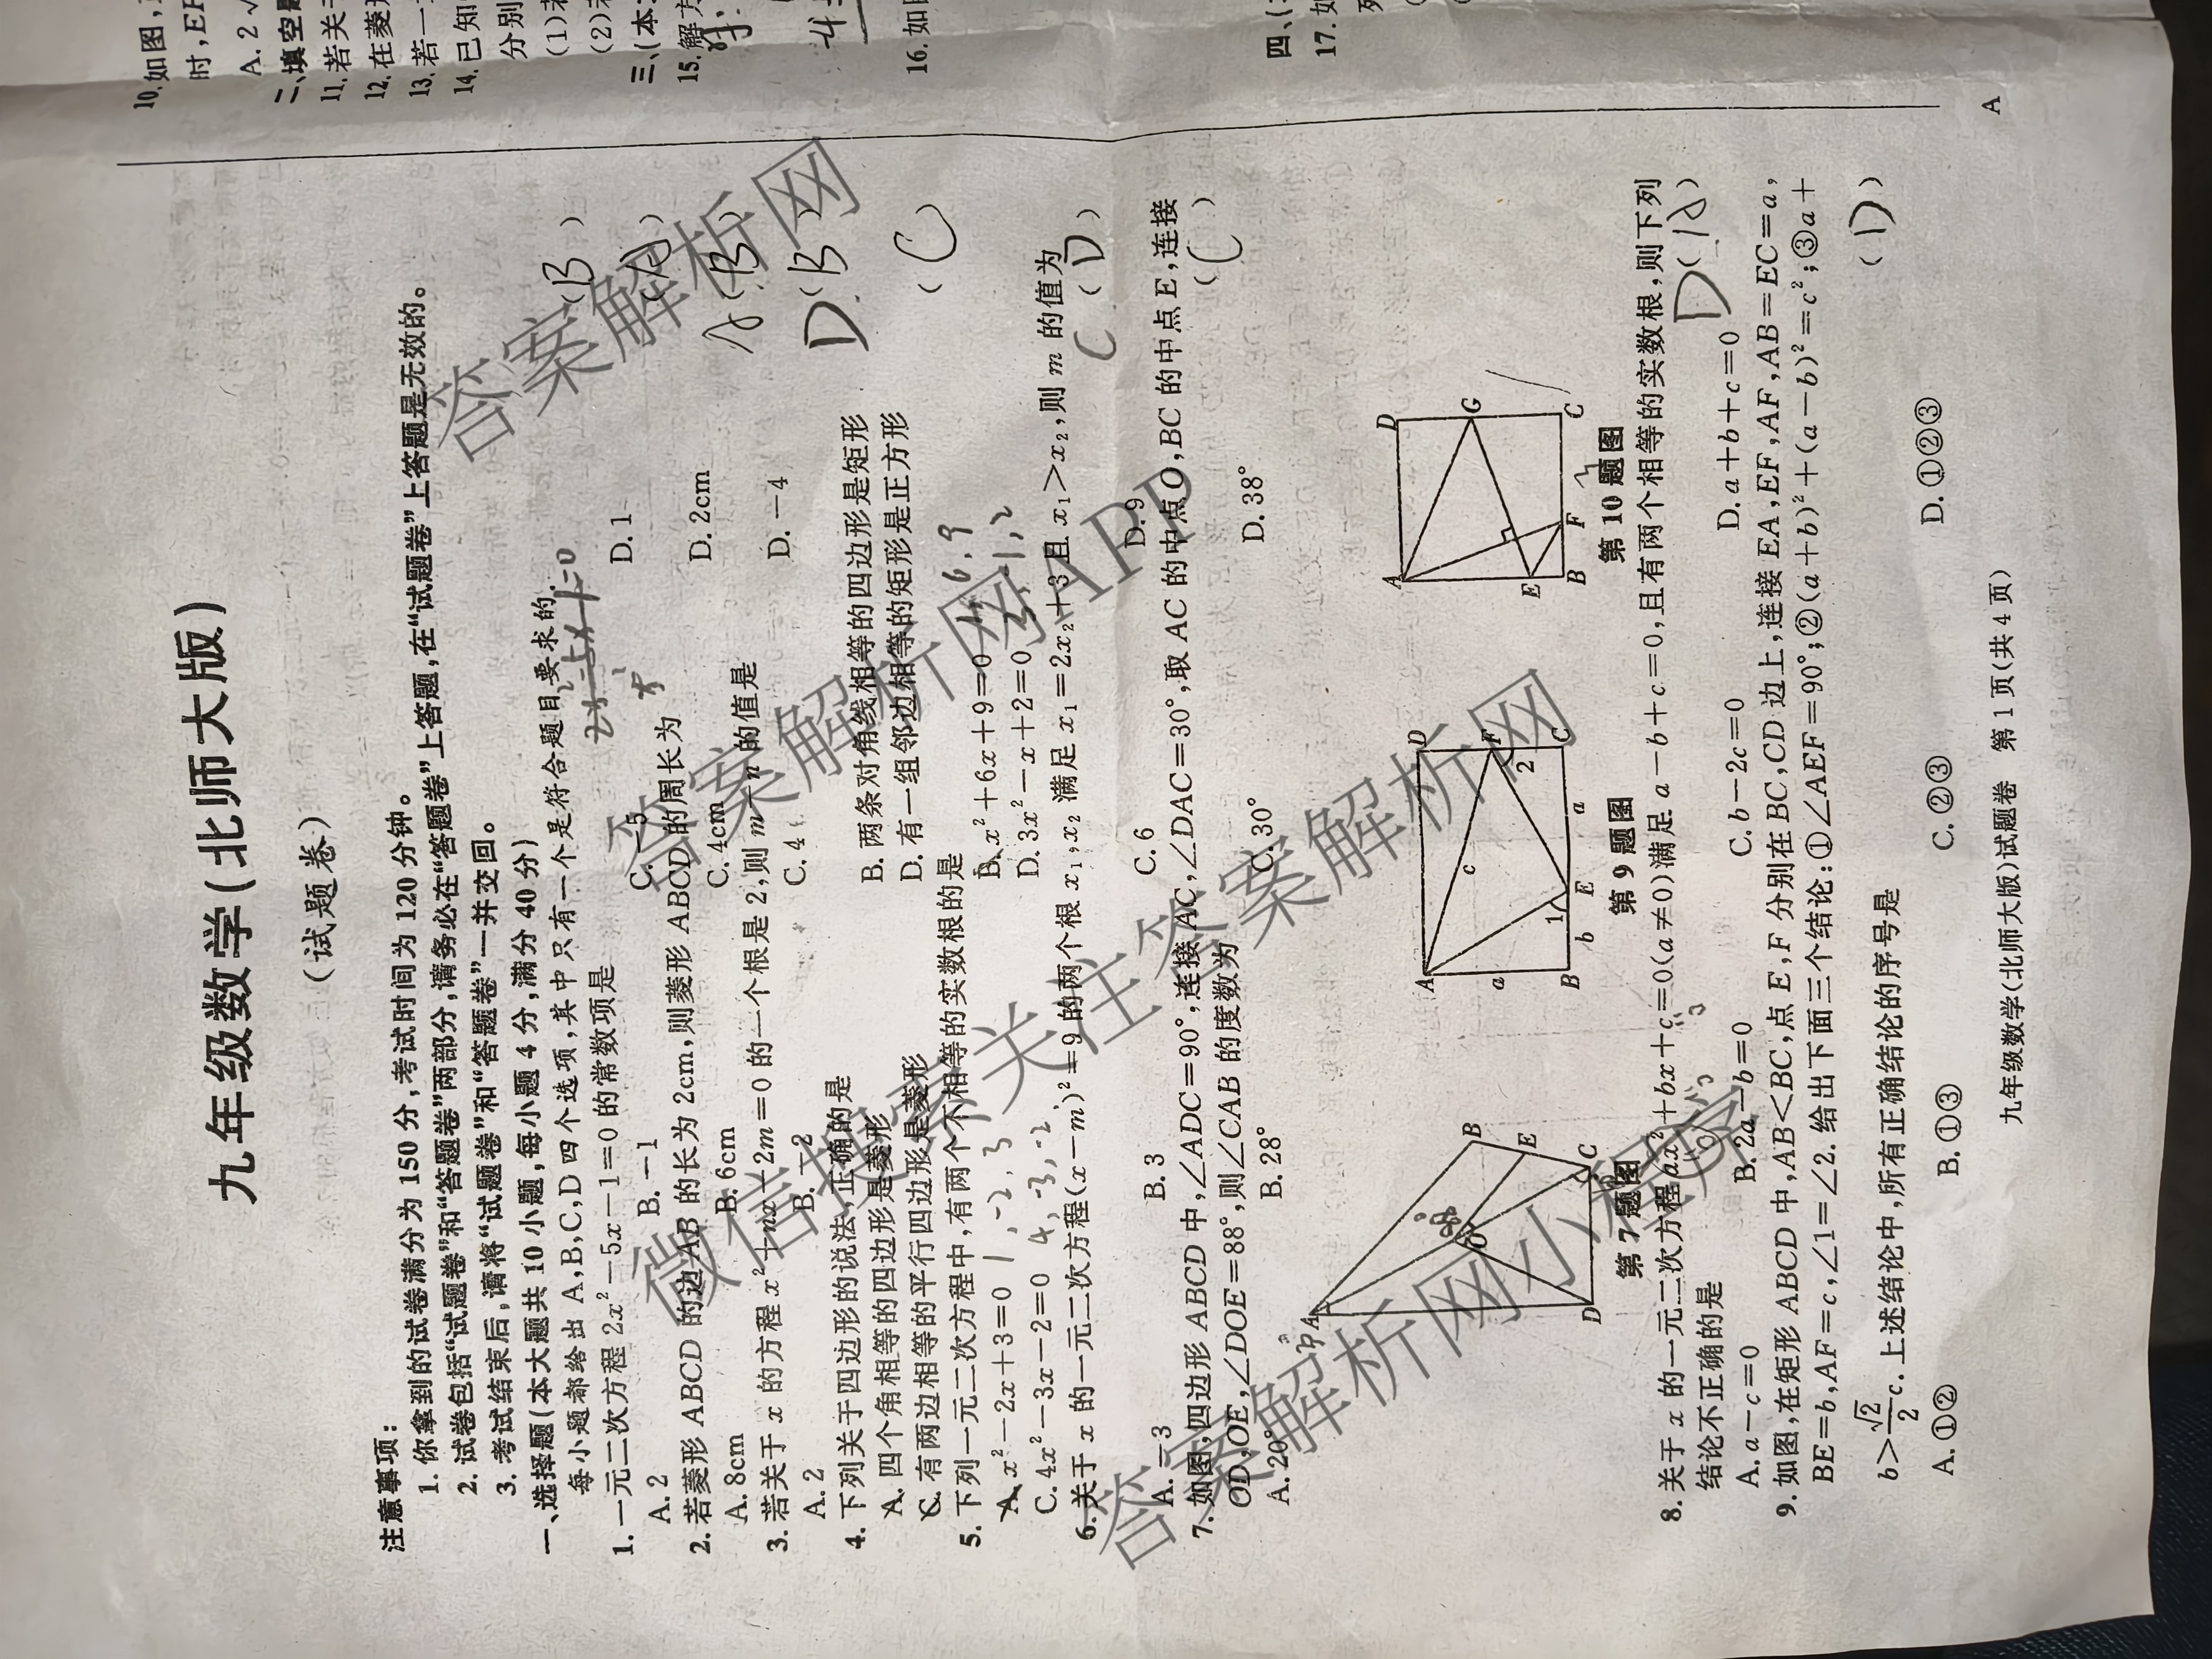 九年级数学(北师大版)
(试题卷)
注意事项:
1. 你拿到的试卷满分为 150 分,考试时间为 120 分钟。
2. 试卷包括“试题卷”和“答题卷”两部分,请务必在“答题卷”上答题,在“试题卷”上答题是无效的。
3. 考试结束后,请将“试题卷”和“答题卷”一并交回。
一、选择题(本大题共 10 小题,每小题 4 分,满分 40 分)
每小题都给出 A,B,C,D 四个选项,其中只有一个是符合题目要求的.
1. 一元二次方程 2x²-5x-1=0 的常数项是 (B)
A. 2 B. -1 C. -5 D. 1
2. 若菱形 ABCD 的边 AB 的长为 2cm,则菱形 ABCD 的周长为 (A)
A. 8cm B. 6cm C. 4cm D. 2cm
3. 若关于 x 的方程 x²+mx-2n=0 的一个根是 2,则 m-n 的值是 A (B)
A. 2 B. -2 C. 4 D. -4
4. 下列关于四边形的说法,正确的是 D (B)
A. 四个角相等的四边形是菱形 B. 两条对角线相等的四边形是矩形
C. 有两边相等的平行四边形是菱形 D. 有一组邻边相等的矩形是正方形
5. 下列一元二次方程中,有两个不相等的实数根的是 (C)
A. x²-2x+3=0 1,-2,3 B. x²+6x+9=0 1,6,9
C. 4x²-3x-2=0 4,-3,-2 D. 3x²-x+2=0 3,-1,2
6. 关于 x 的一元二次方程(x-m)²=9 的两个根 x₁,x₂ 满足 x₁=2x₂+3 且 x₁>x₂,则 m 的值为 C (D)
A. -3 B. 3 C. 6 D. 9
7. 如图,四边形 ABCD 中,∠ADC=90°,连接 AC,∠DAC=30°,取 AC 的中点 O,BC 的中点 E,连接
OD,OE,∠DOE=88°,则∠CAB 的度数为 (C)
A. 20° B. 28° C. 30° D. 38°
A B E C D O
第 7 题图
A D F C E B a b a c 1 2
第 9 题图
A D G C F B E
第 10 题图
8. 关于 x 的一元二次方程 ax²+bx+c=0(a≠0)满足 a-b+c=0,且有两个相等的实数根,则下列
结论不正确的是 D (A)
A. a-c=0 B. 2a-b=0 C. b-2c=0 D. a+b+c=0
9. 如图,在矩形 ABCD 中,AB<BC,点 E,F 分别在 BC,CD 边上,连接 EA,EF,AF,AB=EC=a,
BE=b,AF=c,∠1=∠2. 给出下面三个结论:①∠AEF=90°;②(a+b)²+(a-b)²=c²;③a+
b>√2/2 c. 上述结论中,所有正确结论的序号是 (D)
A. ①② B. ①③ C. ②③ D. ①②③
九年级数学(北师大版)试题卷 第 1 页(共 4 页)
A
10. 如图,
时,EF
A. 2√
二、填空题
11. 若关于
12. 在菱形
13. 若一
14. 已知
分别
(1)若
(2)
三、(本
15. 解方
16. 如
四、(
17. 如
微信搜索关注答案解析网
答案解析网小程序
答案解析网APP
答案解析网